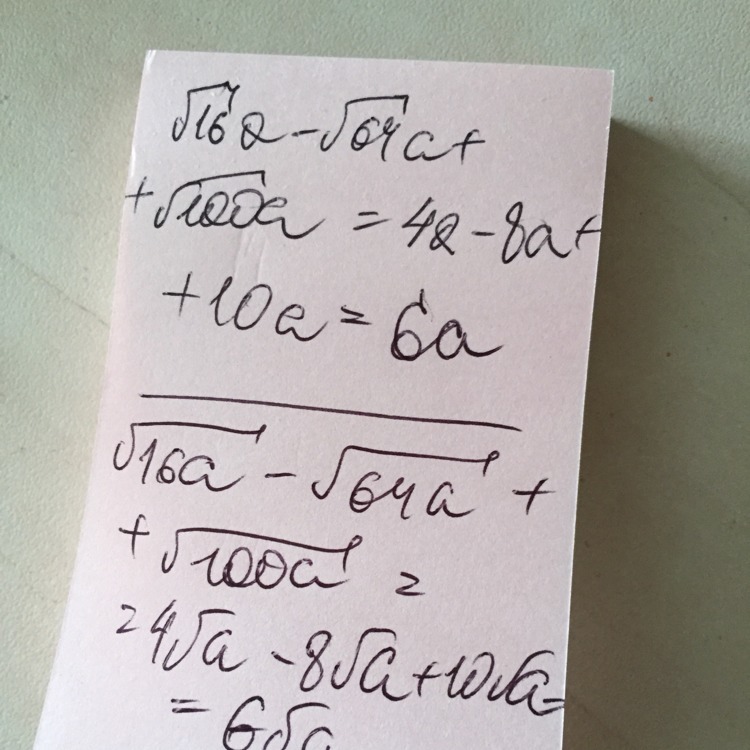 √16a - √64a +
+ √100a = 4a - 8a +
+ 10a = 6a
√16a - √64a +
+ √100a =
= 4√a - 8√a + 10√a =
= 6√a